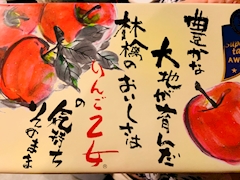 豊かな
大地が育んだ
林檎のおいしさは
りんご乙女
の
気持ち
そのまま